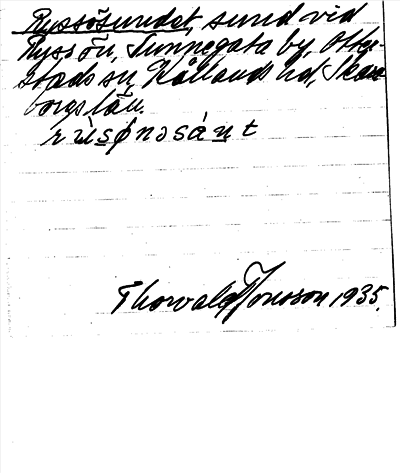 Ryssösundet, sund vid
Ryssön, Sunnegata by, Otter-
stads sn, Kållands hd, Skara-
borgs län.
rùsønəsánt
Thorvald Jonsson 1935.